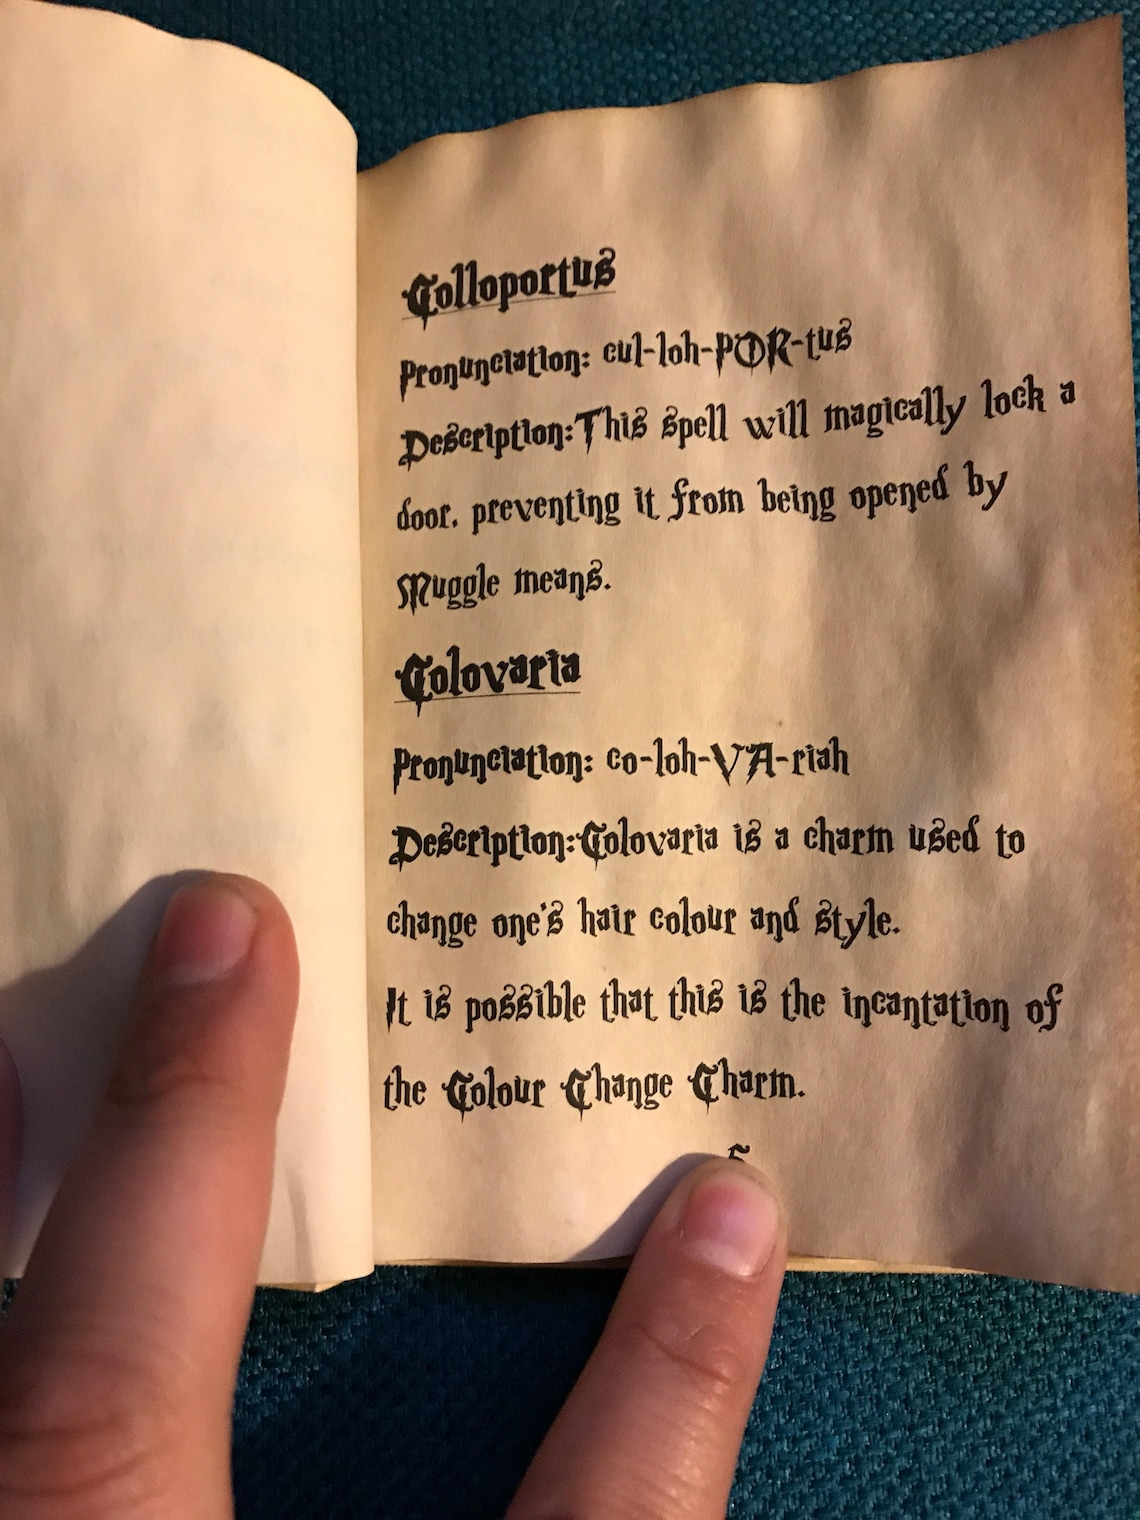 Colloportus
Pronunciation: cul-loh-POR-tus
Description:This spell will magically lock a
door, preventing it from being opened by
Muggle means.
Colovaria
Pronunciation: co-loh-VA-riah
Description:Colovaria is a charm used to
change one's hair colour and style.
It is possible that this is the incantation of
the Colour Change Charm.
5